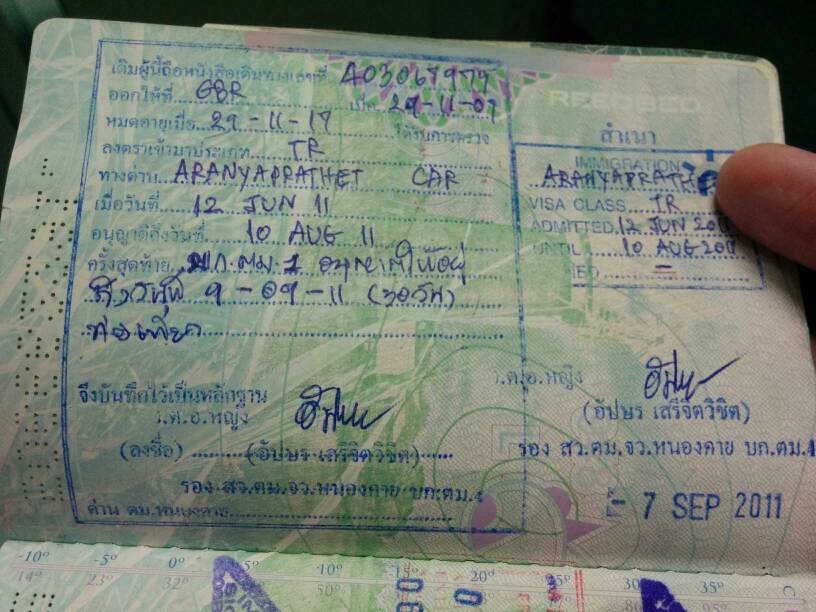 เดิมผู้นี้ถือหนังสือเดินทางเลขที่ 403067979
ออกให้ที่ GBR เมื่อ 29-11-07
หมดอายุเมื่อ 29-11-17 ได้รับการตรวจ
ลงตราเข้ามาประเภท TR
ทางด่าน ARANYAPRATHET CAR
เมื่อวันที่ 12 JUN 11
อนุญาตถึงวันที่ 10 AUG 11
ครั้งสุดท้าย บก.ตม.1 อนุญาตให้อยู่
ถึงวันที่ 9-09-11 (30วัน)
ท่องเที่ยว
จึงบันทึกไว้เป็นหลักฐาน
ว.ต.อ.หญิง
(ลงชื่อ) (อัปษร เสรีจิตวิชิต)
รอง สว.ตม.จว.หนองคาย บก.ตม.4
ด่าน ตม.หนองคาย
สำเนา
IMMIGRATION
ARANYAPRATH
VISA CLASS TR
ADMITTED 12 JUN 2011
UNTIL 10 AUG 2011
-
ว.ต.อ.หญิง
(อัปษร เสรีจิตวิชิต)
รอง สว.ตม.จว.หนองคาย บก.ตม.4
- 7 SEP 2011
-10° -5° 0° 10° 20° 30° 35°
14° 23° 32° 50°